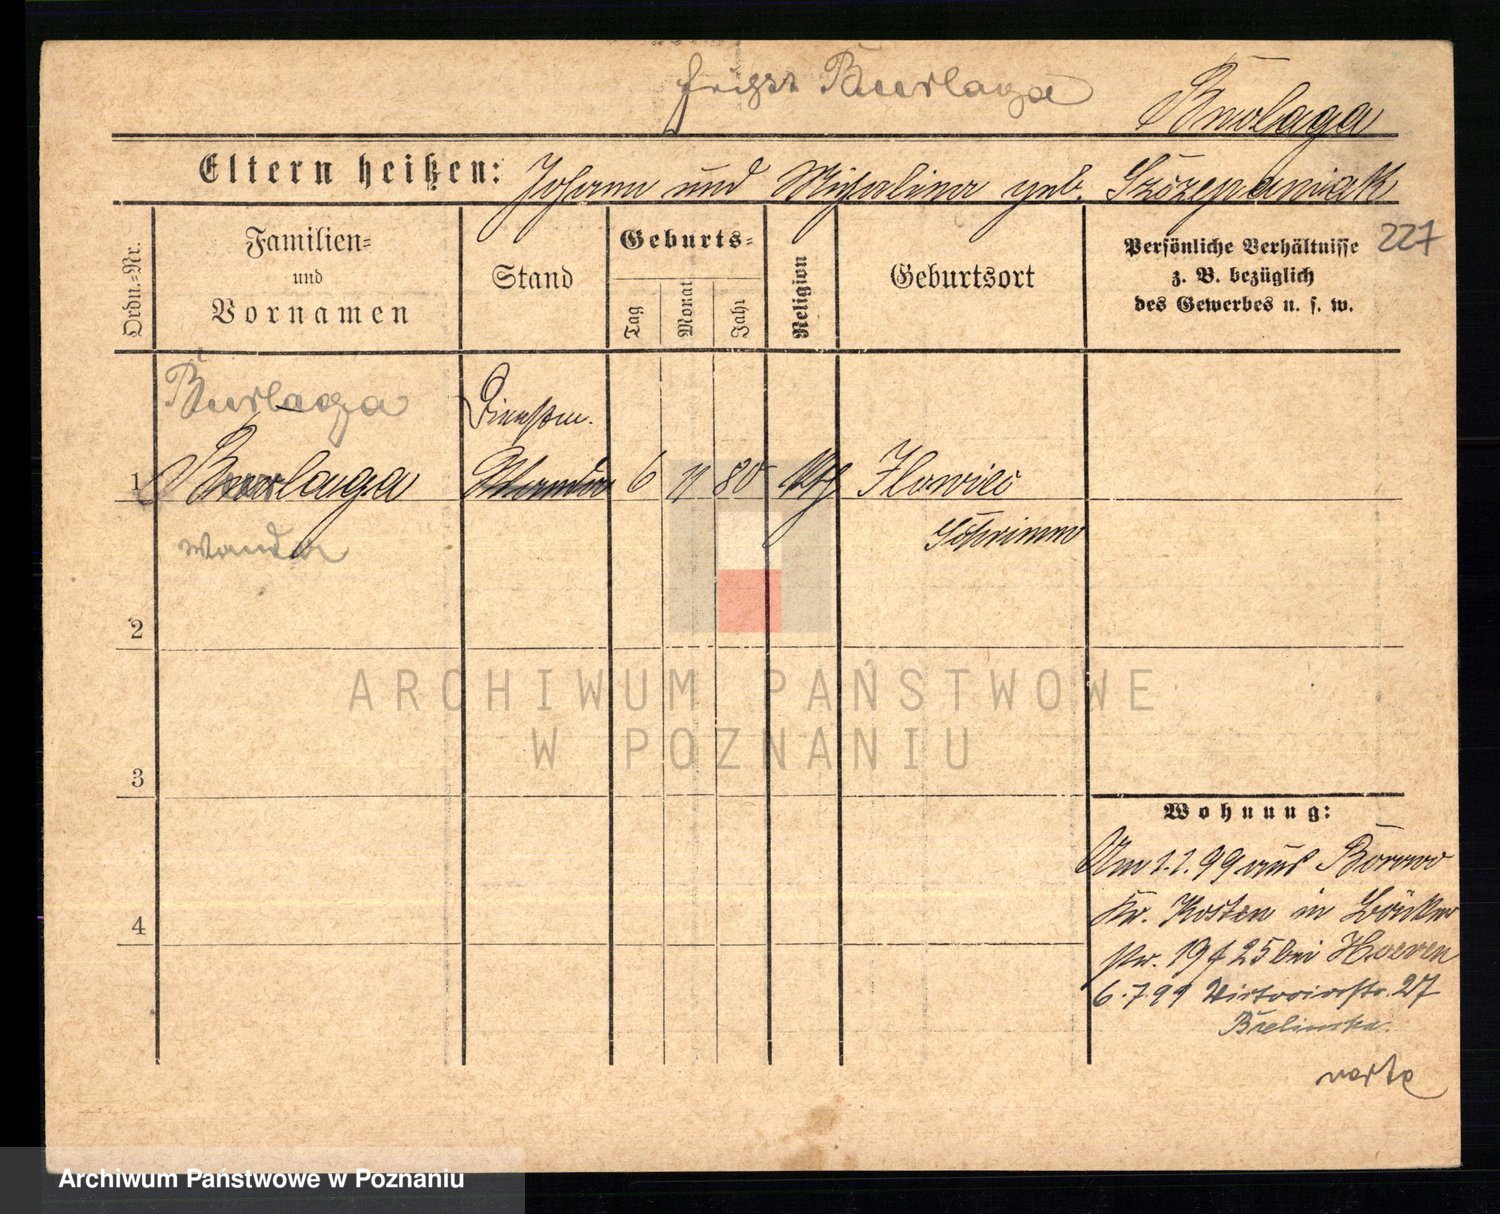 Burlaga
Eltern heißen: Johann und Michalina geb. Szczepaniak
227
Ordn.-Nr.
Familien-
und
Vornamen
Stand
Geburts-
Tag
Monat
Jahr
Religion
Geburtsort
Persönliche Verhältnisse
z. B. bezüglich
des Gewerbes u. s. w.
Burlaga
Dienstm.
1 6 11 80 kth Ilowiec
Wanda
Schrimm
2
3
4
Wohnung:
Am 2.1.99 aus Borowo
Kr. Kosten in
str. 19 f 25 bei
6.7.99 Victoriastr. 27
Bielinska
verte
ARCHIWUM PAŃSTWOWE
W POZNANIU
Archiwum Państwowe w Poznaniu